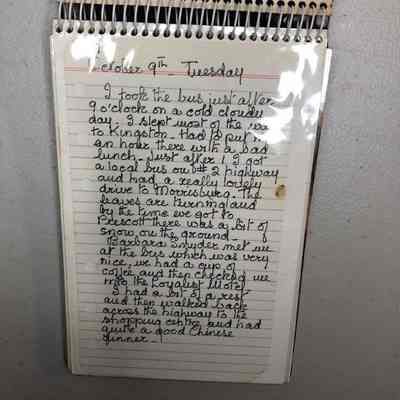 ctober 9th - Tuesday
I took the bus just after
9 o'clock on a cold cloudy
day. I slept most of the wa
to Kingston. Had to put in
an hour there with a bad
lunch. Just after 1 I got
a local bus on #2 highway
and had a really lovely
drive to Morrisburg. The
leaves are turning and
by the time we got to
Prescott there was a bit of
snow on the ground.
Barbara Snyder met me
at the bus which was very
nice, we had a cup of
coffee and then checked me
into the Loyalist Motel
I had a bit of a rest
and then walked back
across the highway to the
shopping centre and had
quite a good Chinese
dinner.